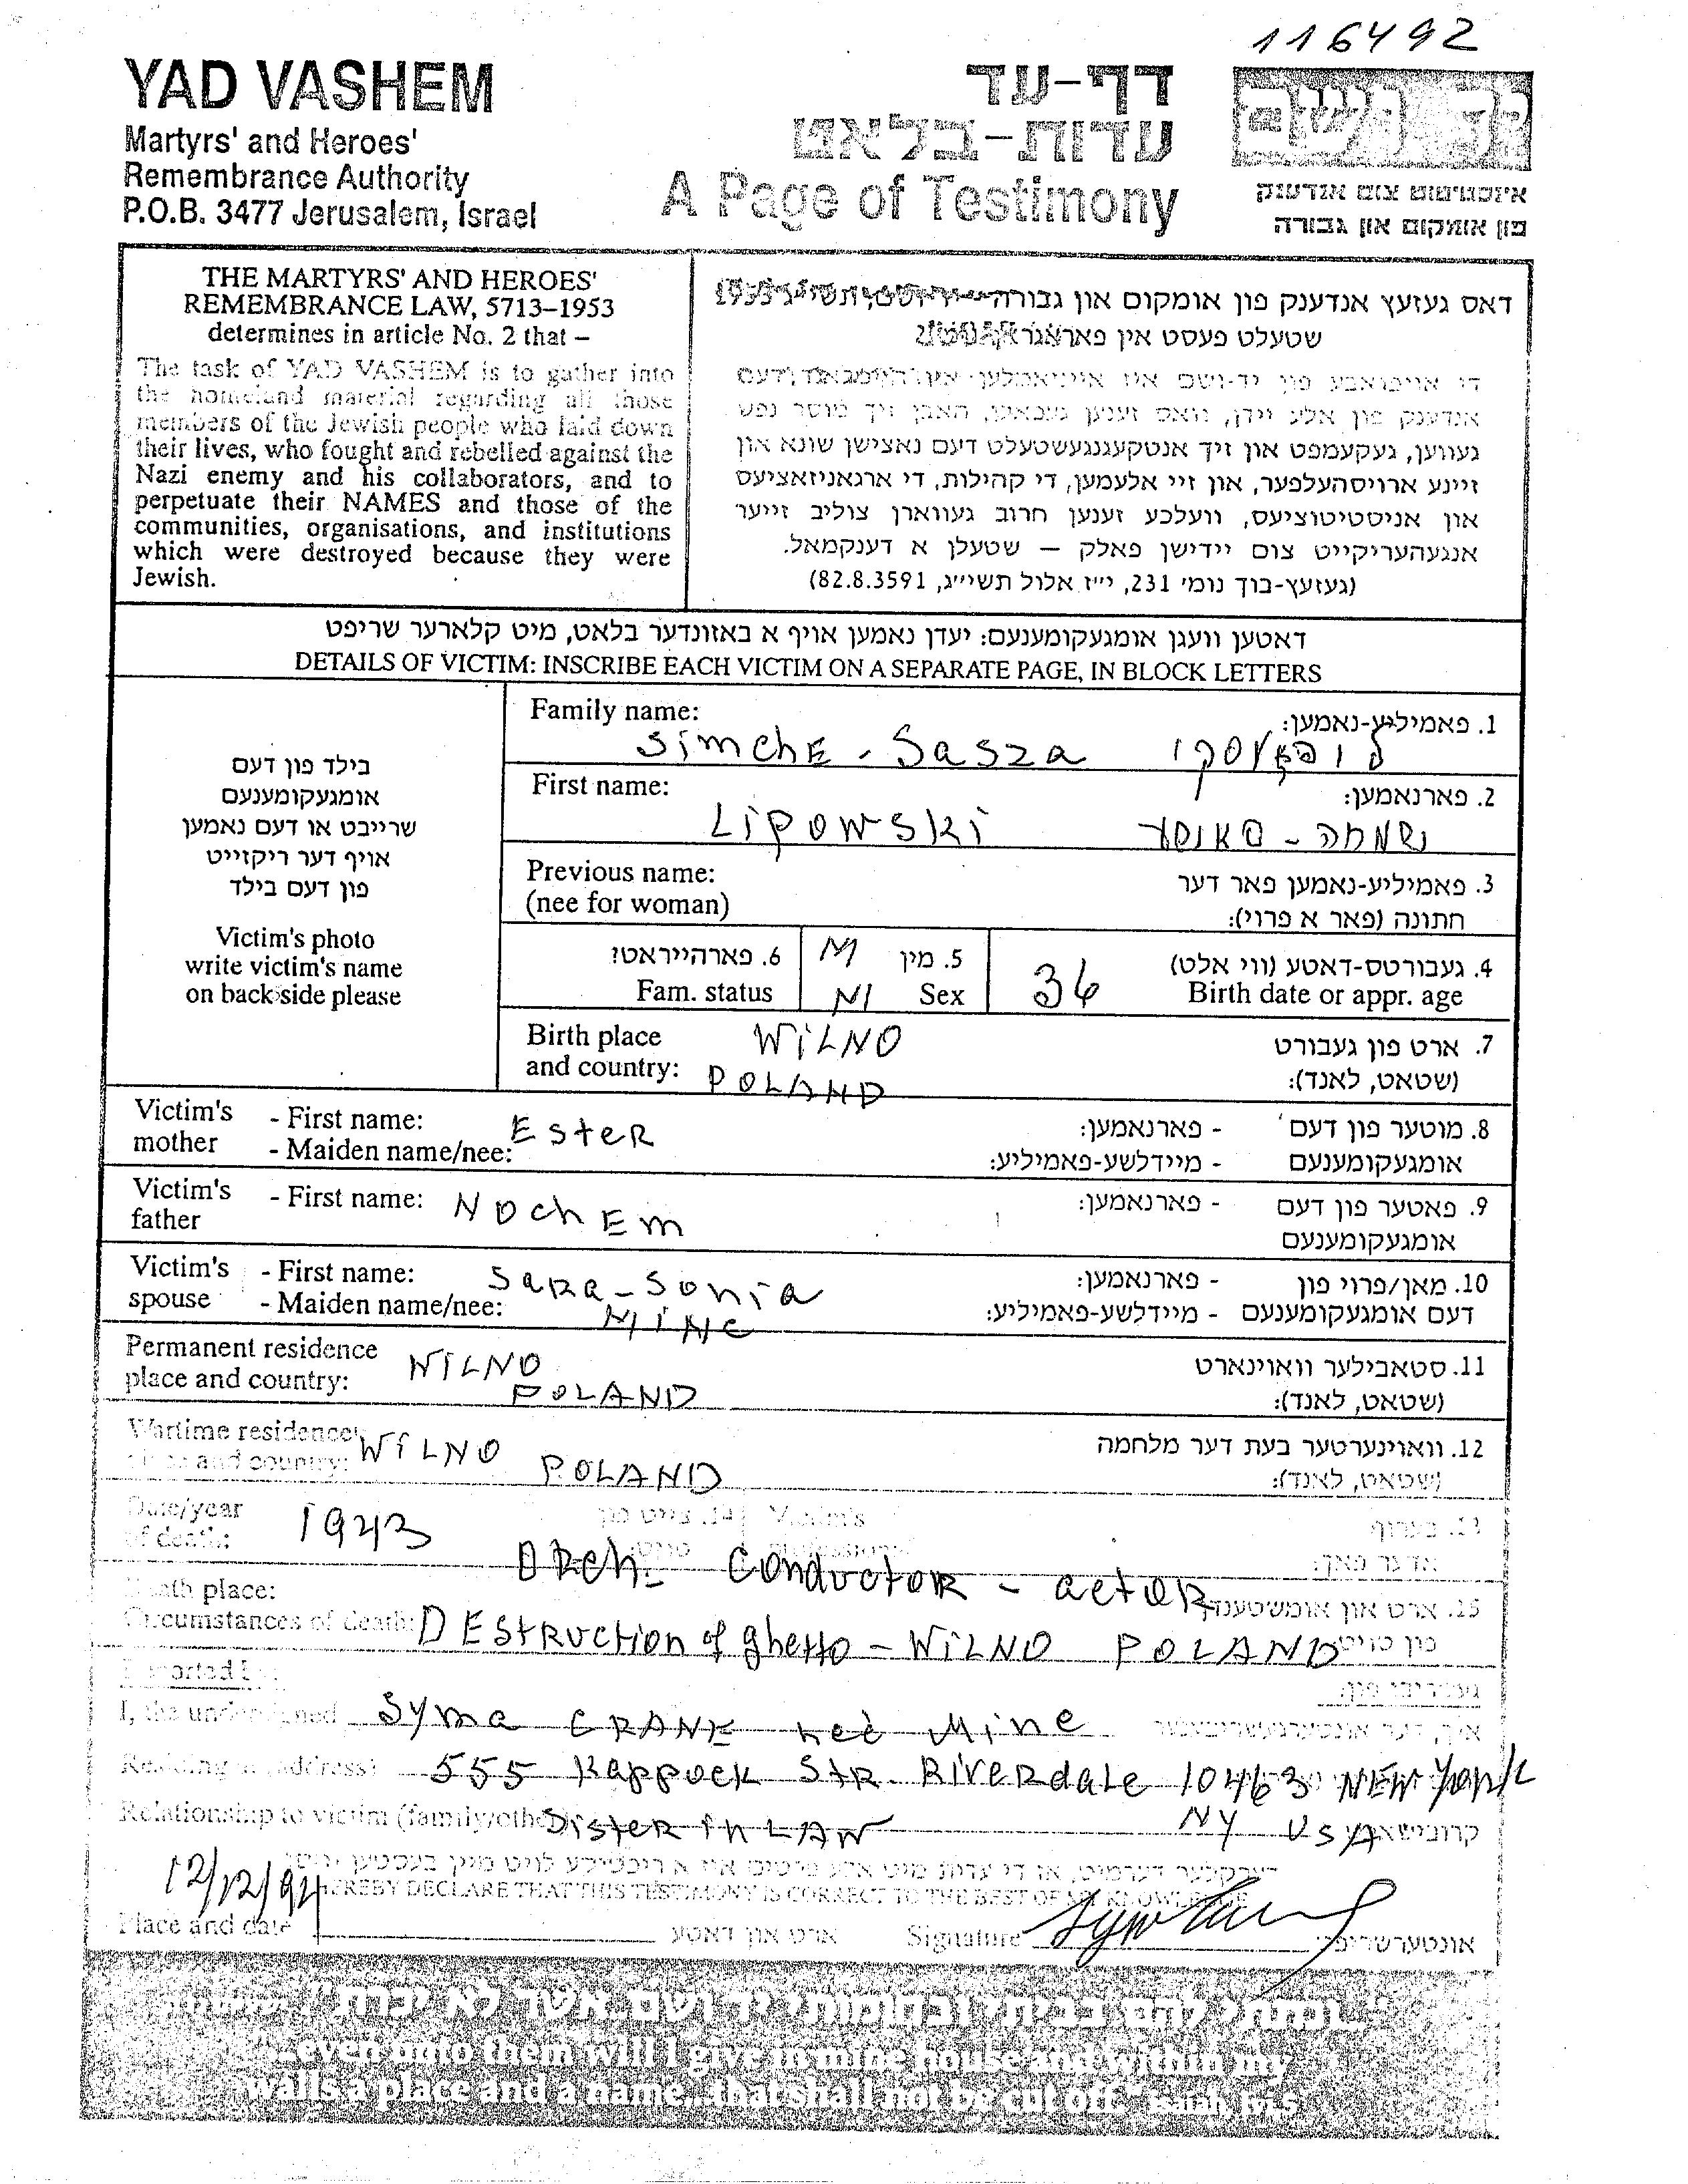 116492
YAD VASHEM
Martyrs' and Heroes'
Remembrance Authority
P.O.B. 3477 Jerusalem, Israel
דף-עד
עדות-בלאט
A Page of Testimony
יד ושם
אינסטיטוט צום אנדענק
פון אומקום און גבורה
THE MARTYRS' AND HEROES'
REMEMBRANCE LAW, 5713–1953
determines in article No. 2 that –
The task of YAD VASHEM is to gather into
the homeland material regarding all those
members of the Jewish people who laid down
their lives, who fought and rebelled against the
Nazi enemy and his collaborators, and to
perpetuate their NAMES and those of the
communities, organisations, and institutions
which were destroyed because they were
Jewish.
דאס געזעץ אנדענק פון אומקום און גבורה
שטעלט פעסט אין
די אויפגאבע פון יד-ושם איז
אנדענק פון אלע יידן, וואס זענען געפאלן, האבן זיך מוסר נפש
געווען, געקעמפט און זיך אנטקעגנגעשטעלט דעם נאצישן שונא און
זיינע ארויסהעלפער, און זיי אלעמען, די קהילות, די ארגאניזאציעס
און אניסטיטוציעס, וועלכע זענען חרוב געווארן צוליב זייער
אנגעהעריקייט צום יידישן פאלק – שטעלן א דענקמאל.
(געזעץ-בוך נומ' 231, י"ז אלול תשי"ג, 82.8.3591)
דאטען וועגן אומגעקומענעם: יעדן נאמען אויף א באזונדער בלאט, מיט קלארער שריפט
DETAILS OF VICTIM: INSCRIBE EACH VICTIM ON A SEPARATE PAGE, IN BLOCK LETTERS
בילד פון דעם
אומגעקומענעם
שרייבט או דעם נאמען
אויף דער ריקזייט
פון דעם בילד
Victim's photo
write victim's name
on back side please
Family name: 1. פאמיליע-נאמען:
SimchE - Sasza
First name: 2. פארנאמען:
Lipowski
Previous name: 3. פאמיליע-נאמען פאר דער
(nee for woman) חתונה (פאר א פרוי):
6. פארהייראט? M 5. מין 4. געבורטס-דאטע (ווי אלט)
Fam. status M Sex 36 Birth date or appr. age
Birth place WiLNO 7. ארט פון געבורט
and country: POLAND (שטאט, לאנד):
Victim's - First name: EsteR 8. מוטער פון דעם - פארנאמען:
mother - Maiden name/nee: אומגעקומענעם - מיידלשע-פאמיליע:
Victim's - First name: NochEm 9. פאטער פון דעם - פארנאמען:
father אומגעקומענעם
Victim's - First name: SaRa-Sonia 10. מאן/פרוי פון - פארנאמען:
spouse - Maiden name/nee: דעם אומגעקומענעם - מיידלשע-פאמיליע:
Permanent residence WiLNO 11. סטאבילער וואוינארט
place and country: POLAND (שטאט, לאנד):
Wartime residence WiLNO 12. וואוינערטער בעת דער מלחמה
and country: POLAND (שטאט, לאנד):
Date/year 1943 Victim's
of death:
ORch. ConductoR - actoR
Death place:
Circumstances of death: DEstRuction of ghetto - WiLNO POLAND
I, the undersigned Syma CRANE neé Mine
Residing at (address) 555 Kappock StR. RiveRdaLe 10463 NEW YoRK
Relationship to victim (family/other) SisteR in LAW NY USA
I HEREBY DECLARE THAT THIS TESTIMONY IS CORRECT TO THE BEST OF MY KNOWLEDGE
Place and date ארט און דאטע Signature
ונתתי להם בביתי ובחומותי יד ושם אשר לא יכרת
...even unto them will I give in mine house and within my
walls a place and a name...that shall not be cut off."